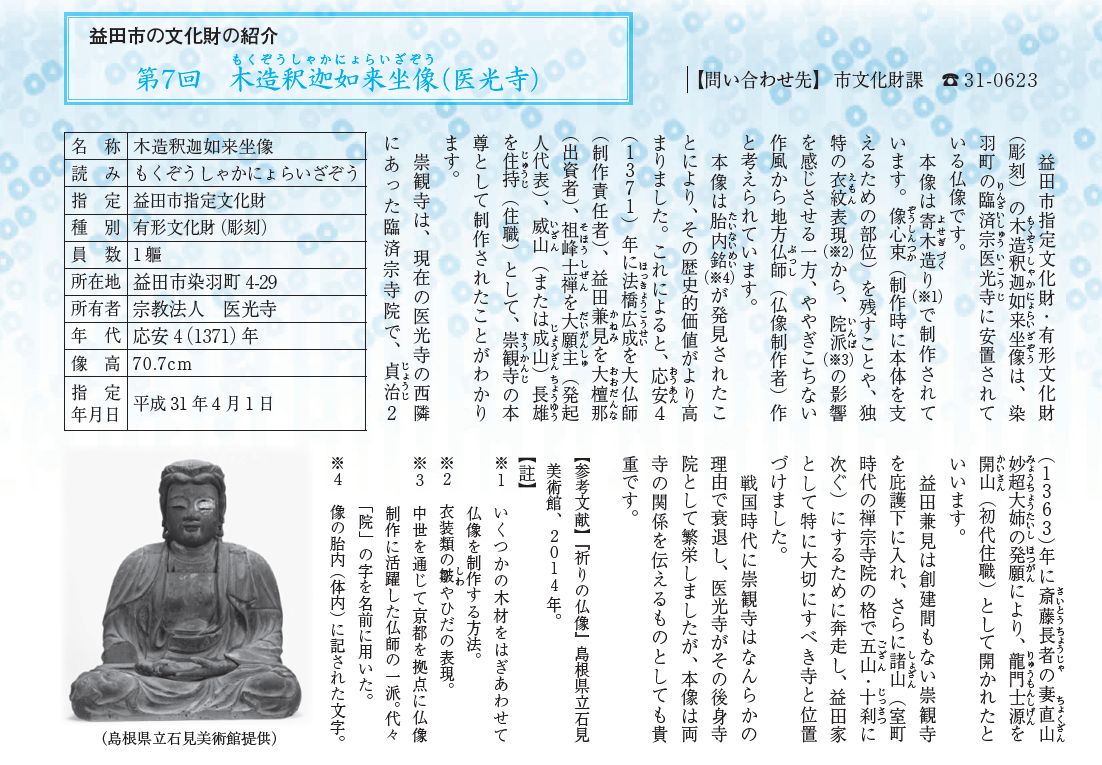 益田市の文化財の紹介
もくぞうしゃかにょらいざぞう
第7回　木造釈迦如来坐像（医光寺）
【問い合わせ先】 市文化財課　☎31-0623
名　称　木造釈迦如来坐像
読　み　もくぞうしゃかにょらいざぞう
指　定　益田市指定文化財
種　別　有形文化財（彫刻）
員　数　1軀
所在地　益田市染羽町4-29
所有者　宗教法人　医光寺
年　代　応安4（1371）年
像　高　70.7cm
指　定
年月日　平成31年4月1日
益田市指定文化財・有形文化財
（彫刻）の木造釈迦如来坐像は、染
羽町の臨済宗医光寺に安置されて
いる仏像です。
本像は寄木造り（※1）で制作されて
います。像心束（制作時に本体を支
えるための部位）を残すことや、独
特の衣紋表現（※2）から、院派（※3）の影響
を感じさせる一方、ややぎこちない
作風から地方仏師（仏像制作者）作
と考えられています。
本像は胎内銘（※4）が発見されたこ
とにより、その歴史的価値がより高
まりました。これによると、応安4
（1371）年に法橋広成を大仏師
（制作責任者）、益田兼見を大檀那
（出資者）、祖峰士禅を大願主（発起
人代表）、威山（または成山）長雄
を住持（住職）として、崇観寺の本
尊として制作されたことがわかり
ます。
崇観寺は、現在の医光寺の西隣
にあった臨済宗寺院で、貞治2
（1363）年に斎藤長者の妻直山
妙超大姉の発願により、龍門士源を
開山（初代住職）として開かれたと
いいます。
益田兼見は創建間もない崇観寺
を庇護下に入れ、さらに諸山（室町
時代の禅宗寺院の格で五山・十刹に
次ぐ）にするために奔走し、益田家
として特に大切にすべき寺と位置
づけました。
戦国時代に崇観寺はなんらかの
理由で衰退し、医光寺がその後身寺
院として繁栄しましたが、本像は両
寺の関係を伝えるものとしても貴
重です。
【参考文献】『祈りの仏像』島根県立石見
美術館、2014年。
【註】
※1　いくつかの木材をはぎあわせて
仏像を制作する方法。
※2　衣装類の皺やひだの表現。
※3　中世を通じて京都を拠点に仏像
制作に活躍した仏師の一派。代々
「院」の字を名前に用いた。
※4　像の胎内（体内）に記された文字。
（島根県立石見美術館提供）